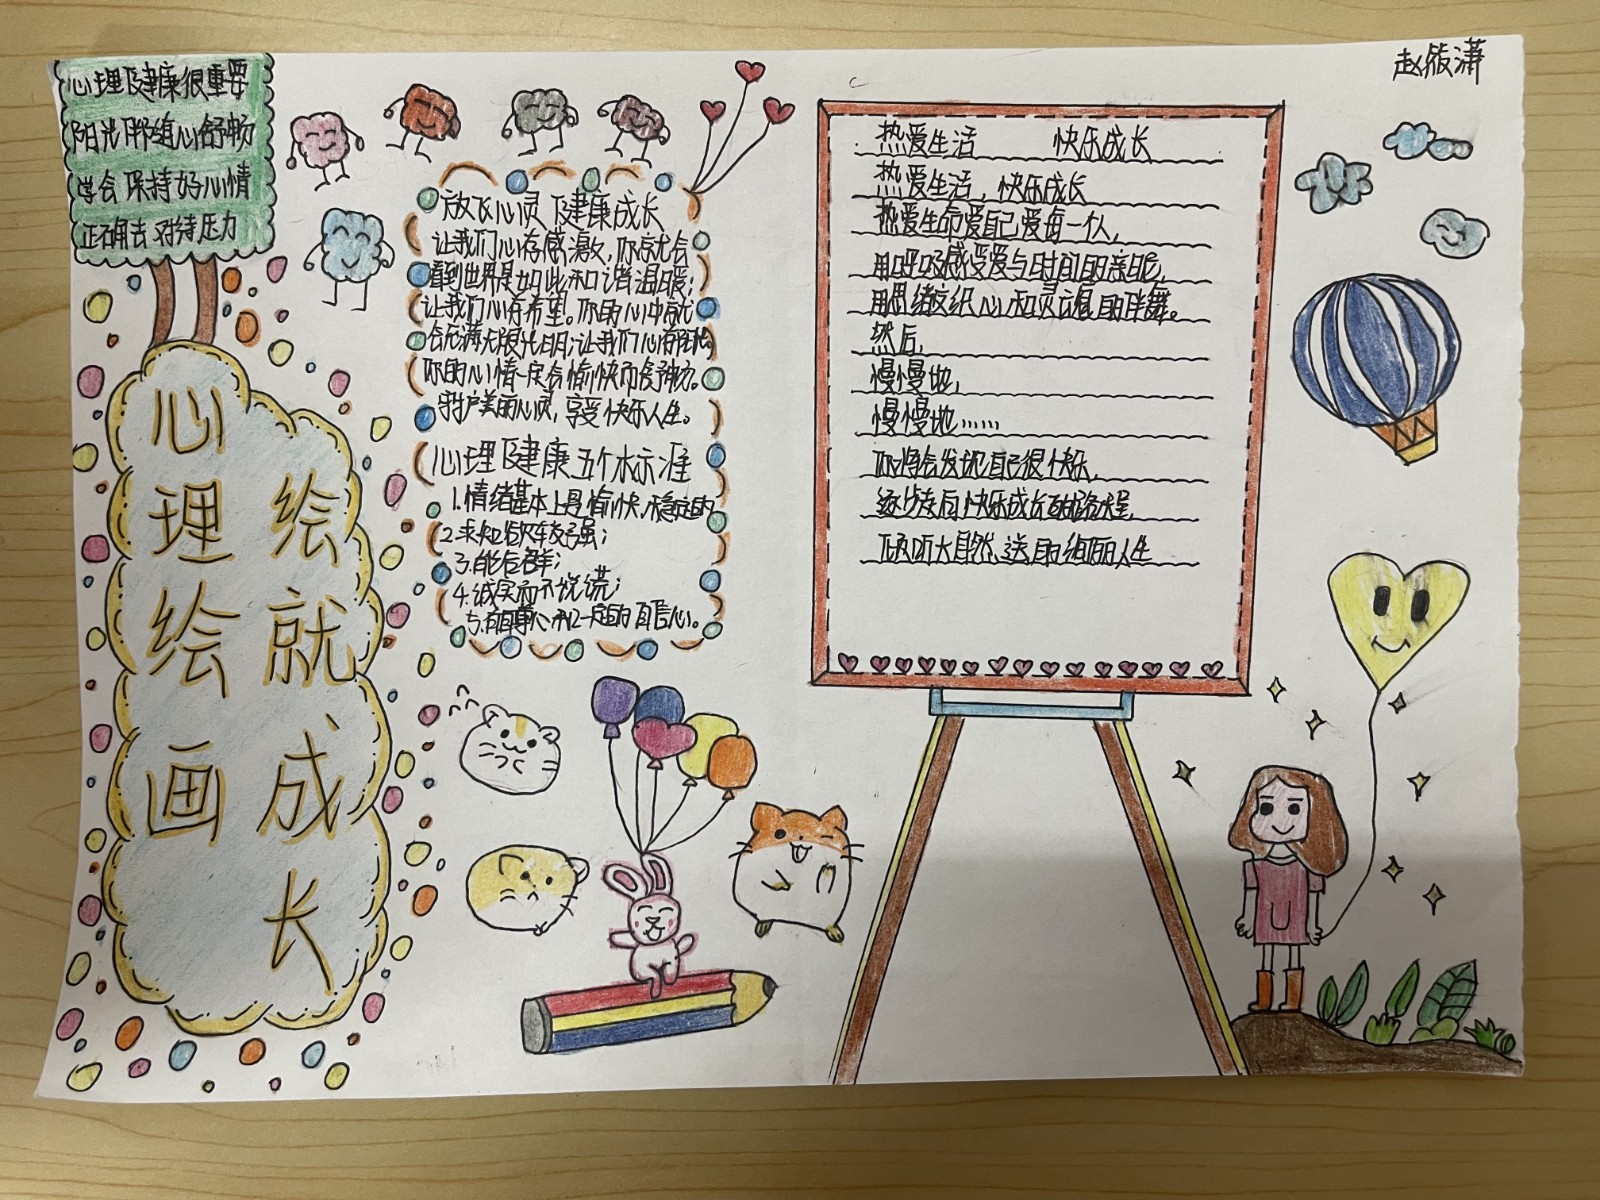 心理健康很重要
阳光伴随心舒畅
学会保持好心情
正确去对待压力
心理绘画
绘就成长
放飞心灵 健康成长
让我们心存感激，你就会
看到世界是如此和谐温暖；
让我们心存希望。你的心中就
会充满无限光明；让我们心存阳光
你的心情一定会愉快而舒畅。
守护美丽心灵，享受快乐人生。
心理健康五个标准
1.情绪基本上是愉快、稳定的
2.求知欲较强；
3.能合群；
4.诚实而不说谎；
5.有自尊心和一定的自信心。
热爱生活 快乐成长
热爱生活，快乐成长
热爱生命爱自己爱每一人，
用呼吸感受爱与时间的亲昵，
用思绪交织心和灵魂的伴舞。
然后，
慢慢地，
慢慢地……
你将会发现自己很快乐，
逐步走向快乐成长的路程，
倾听大自然送的绚丽人生
赵筱潇